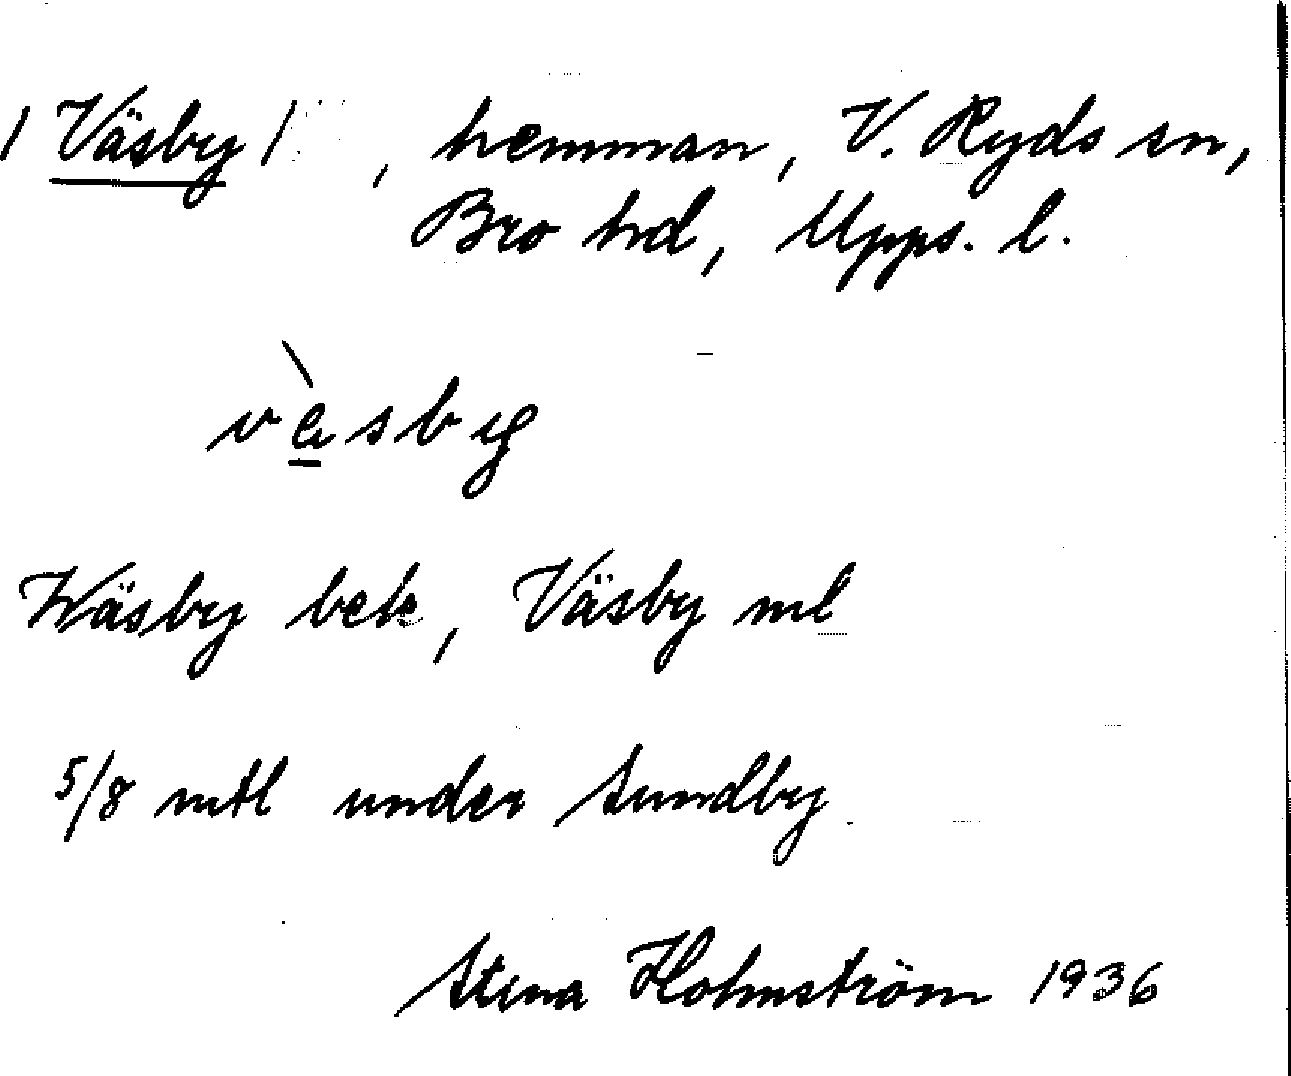 / Väsby / , hemman, V. Ryds sn,
Bro hd, Upps. l.
vɛ̀sby
Wäsby bek, Väsby ml
5/8 mtl under Sundby.
Stina Holmström 1936